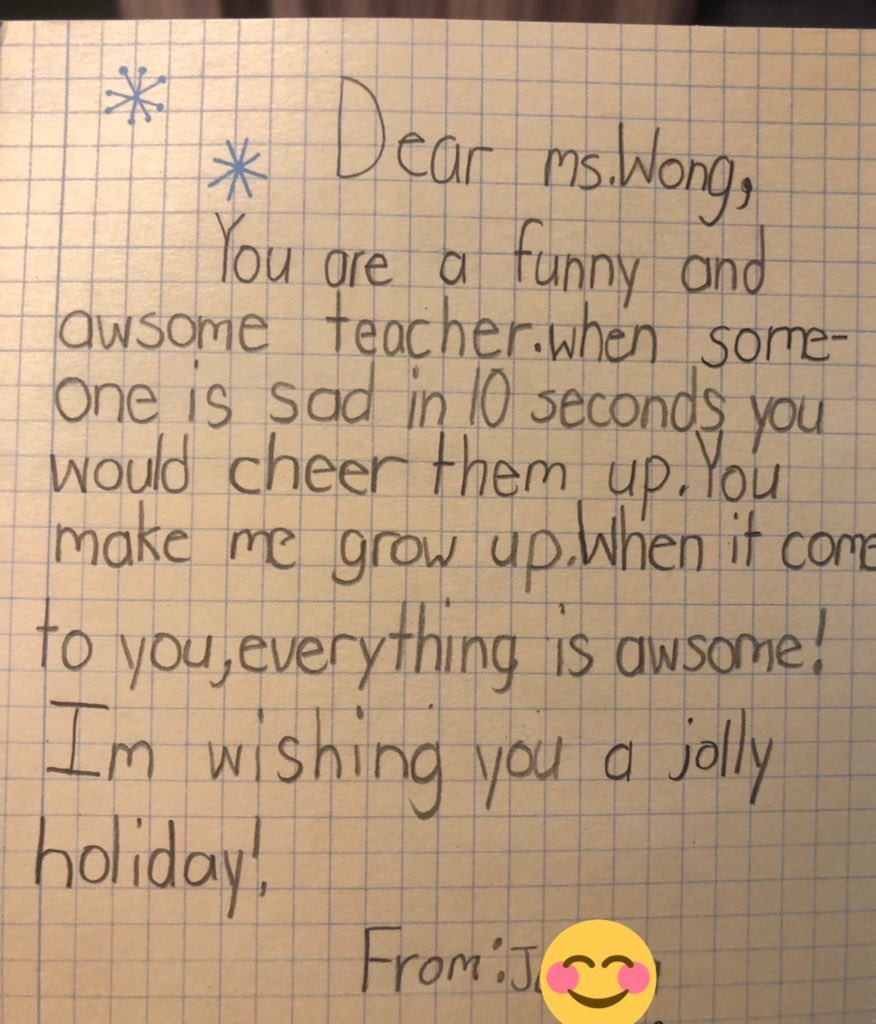 Dear ms.Wong,
You are a funny and
awsome teacher.when some-
one is sad in 10 seconds you
would cheer them up.You
make me grow up.When it come
to you,everything is awsome!
Im wishing you a jolly
holiday!
From:J